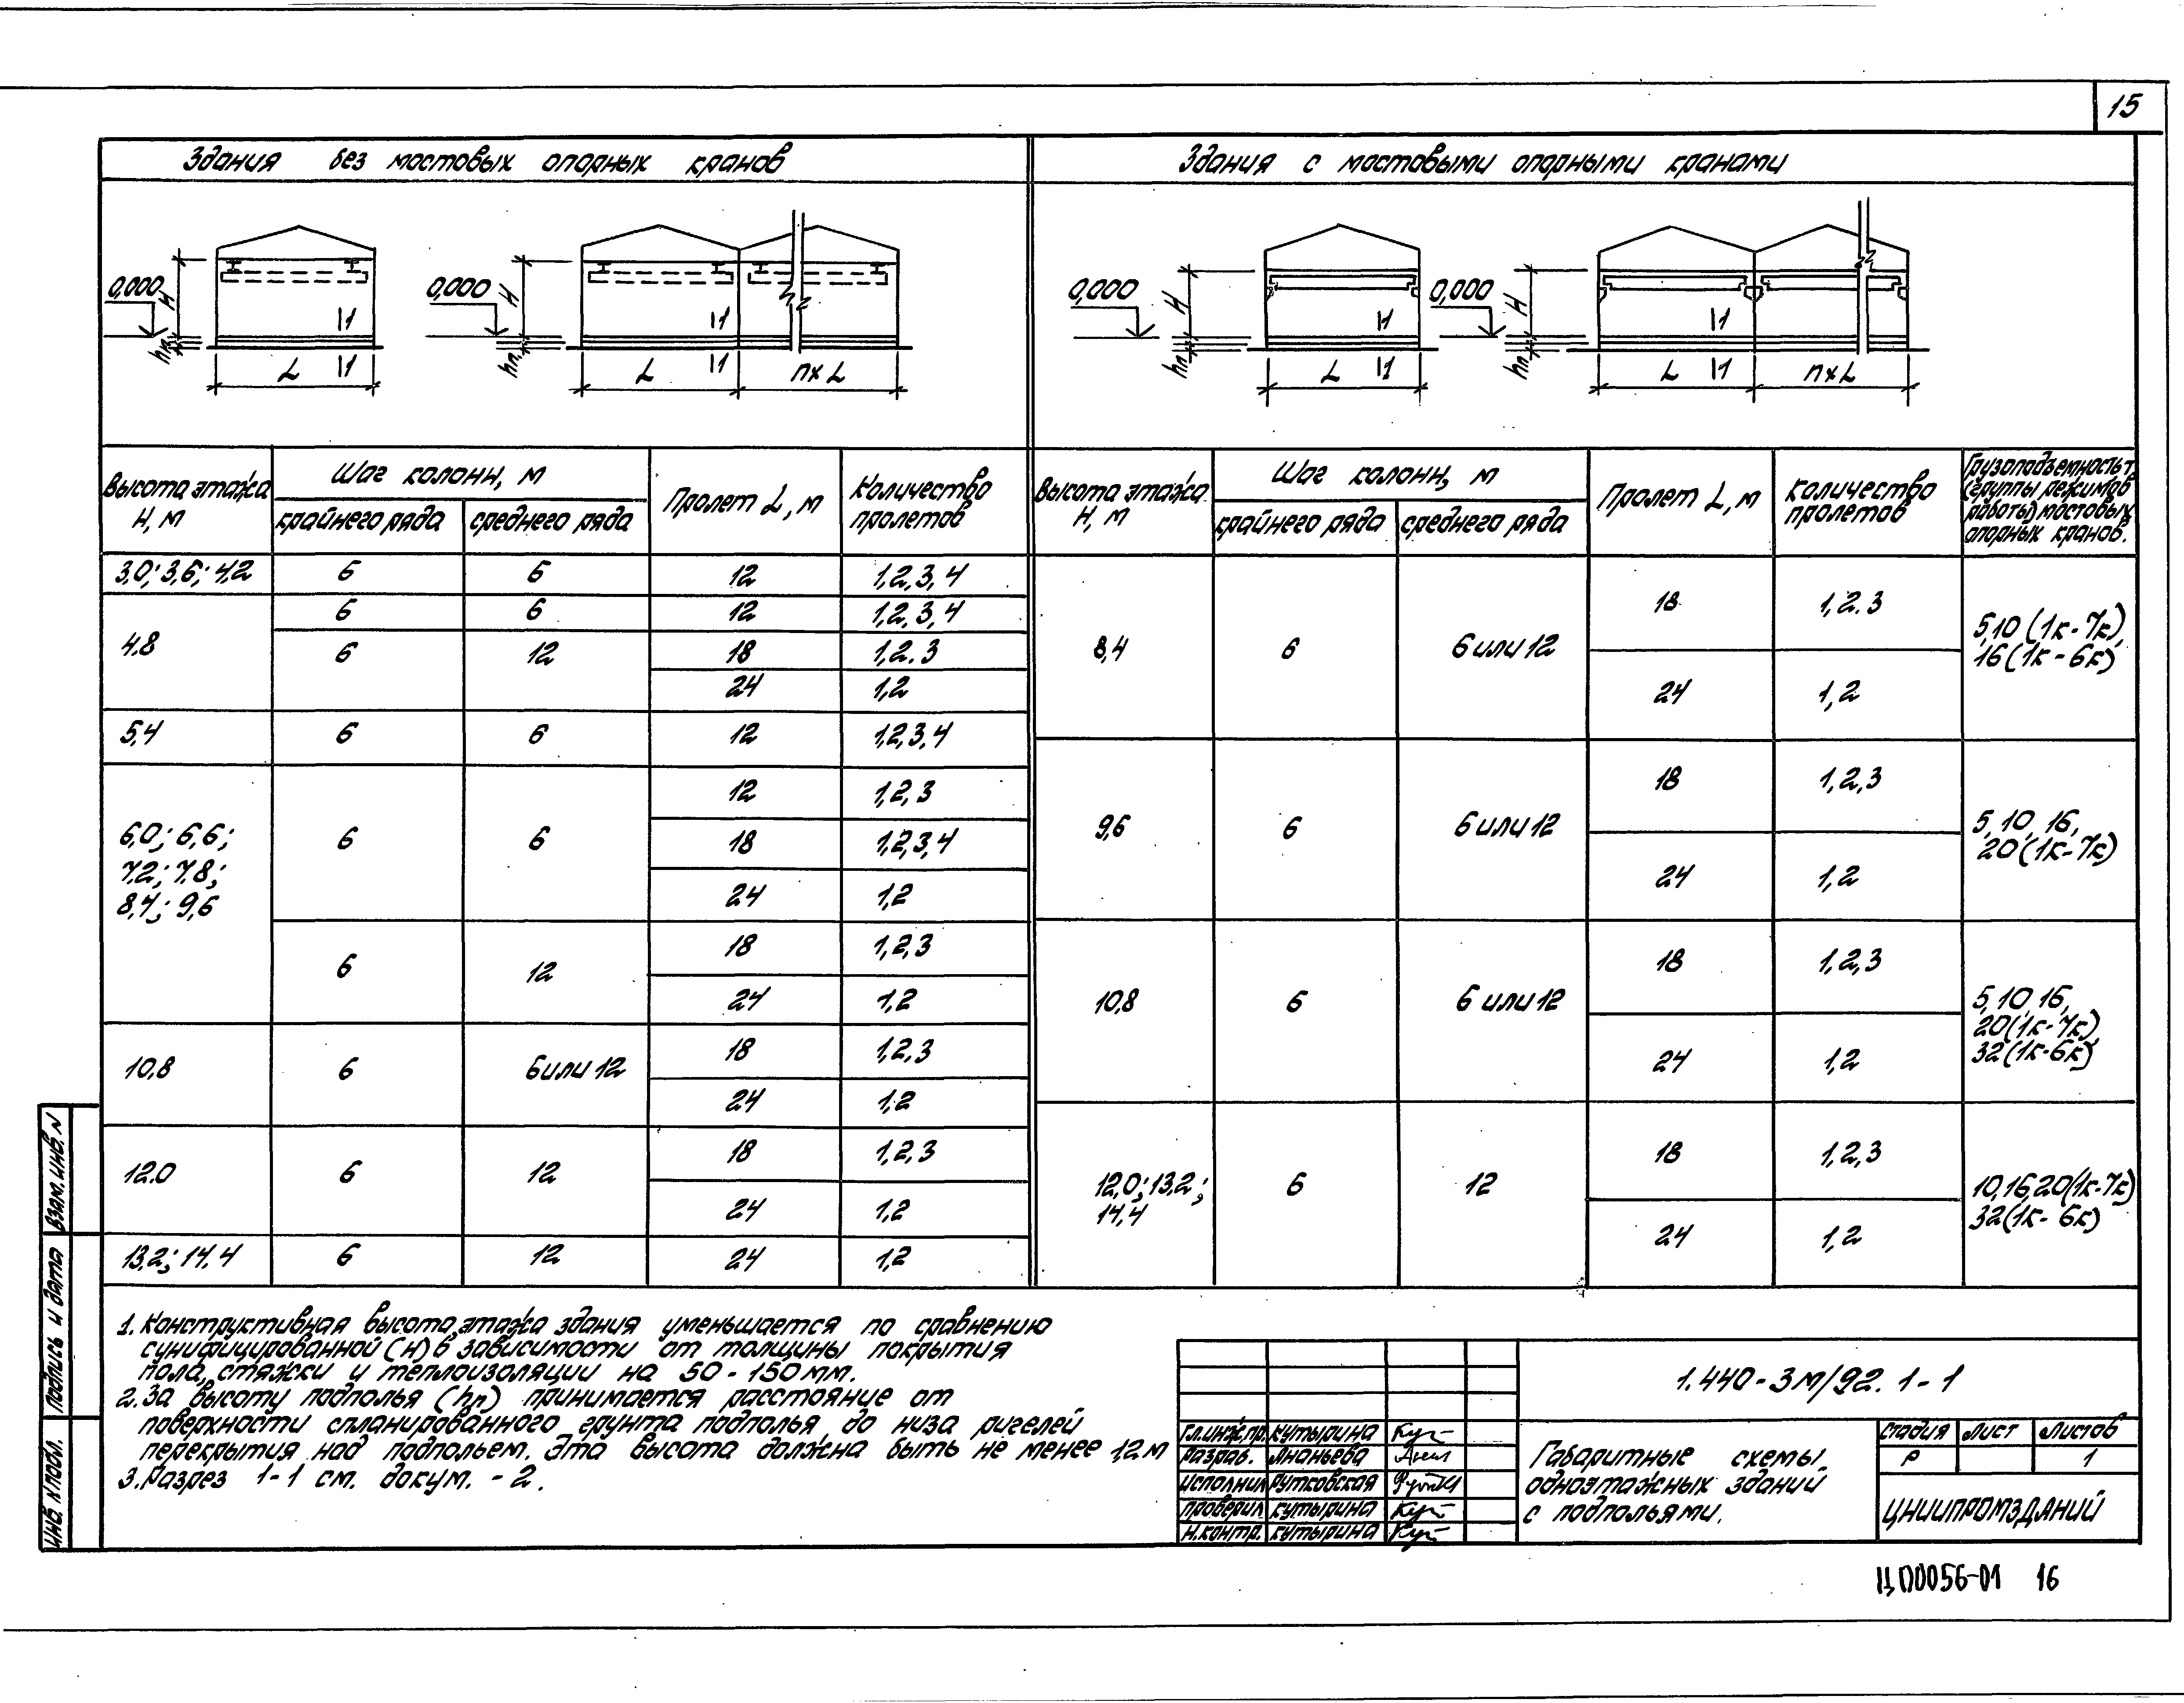 15
Здания без мостовых опорных кранов
Здания с мостовыми опорными кранами
0,000
H
hп
1
1
L
0,000
H
hп
1
1
L
n×L
0,000
H
hп
1
1
L
0,000
H
hп
1
1
L
n×L
Высота этажа
H, м
Шаг колонн, м
крайнего ряда
среднего ряда
Пролет L, м
Количество
пролетов
3,0; 3,6; 4,2 6 6 12 1,2,3,4
4.8 6 6 12 1,2,3,4
6 12 18 1,2.3
24 1,2
5,4 6 6 12 1,2,3,4
6,0; 6,6;
7,2; 7,8;
8,4; 9,6
6 6 12 1,2,3
18 1,2,3,4
24 1,2
6 12 18 1,2,3
24 1,2
10,8 6 6 или 12 18 1,2,3
24 1,2
12.0 6 12 18 1,2,3
24 1,2
13,2; 14.4 6 12 24 1,2
Высота этажа
H, м
Шаг колонн, м
крайнего ряда
среднего ряда
Пролет L, м
Количество
пролетов
Грузоподъемность т,
(группы режимов
работы) мостовых
опорных кранов.
8,4 6 6 или 12 18 1,2.3
24 1,2
5,10 (1к-7к),
16 (1к-6к)
9,6 6 6 или 12 18 1,2,3
24 1,2
5, 10, 16,
20 (1к-7к)
10,8 6 6 или 12 18 1,2,3
24 1,2
5, 10, 16,
20(1к-7к),
32 (1к-6к)
12,0; 13,2;
14,4
6 12 18 1,2,3
24 1,2
10,16,20(1к-7к)
32(1к-6к)
1. Конструктивная высота этажа здания уменьшается по сравнению
сунифицированной (H) в зависимости от толщины покрытия
пола, стяжки и теплоизоляции на 50-150мм.
2. За высоту подполья (hп) принимается расстояние от
поверхности спланированного грунта подполья до низа ригелей
перекрытия над подпольем. Эта высота должна быть не менее 1,2м
3. Разрез 1-1 см. докум. -2.
Взам. инв. N
Подпись и дата
Инв. N подл.
Гл.инж.пр. Кутырина
Разраб. Ананьева
Исполнил Рутковская
Проверил Кутырина
Н.контр. Кутырина
1.440-3м/92. 1-1
Габаритные схемы
одноэтажных зданий
с подпольями.
Стадия Лист Листов
Р 1
ЦНИИПРОМЗДАНИЙ
ЦП0056-01 16